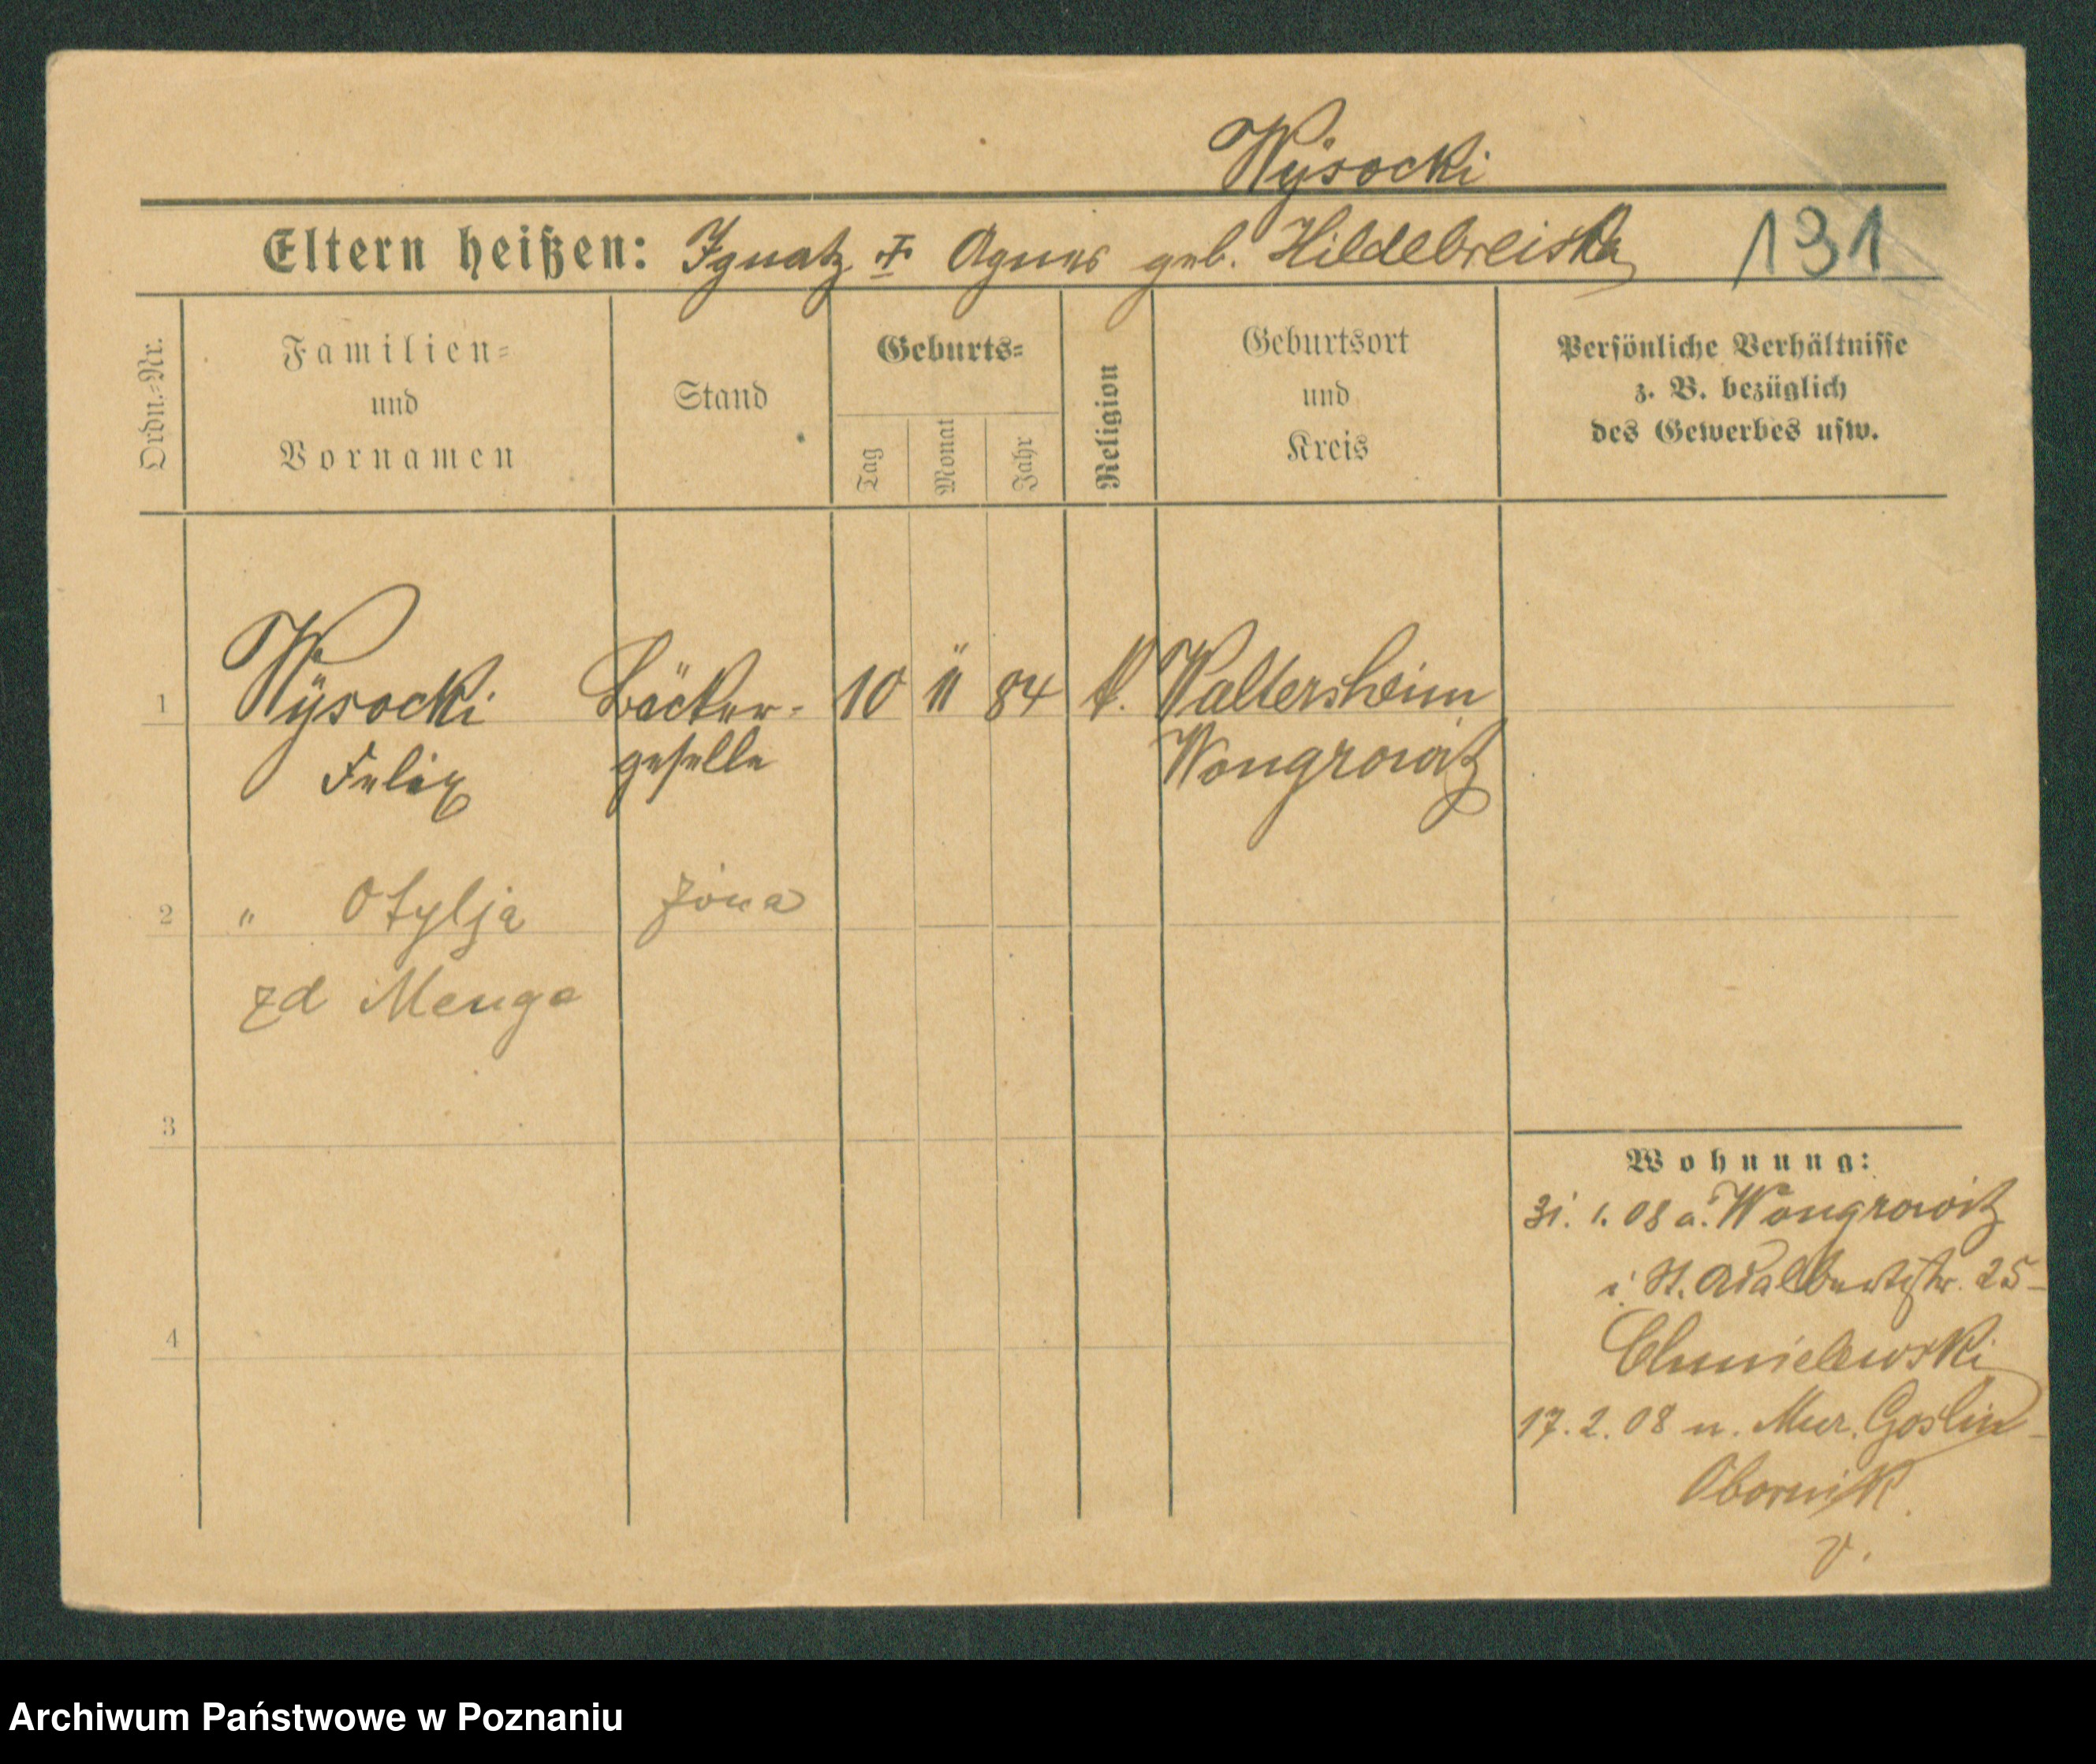 Wÿsocki
Eltern heißen: Ignatz ± Agnes geb. Hildebreiska 131
Ordn.-Nr.
Familien-
und
Vornamen
Stand
Geburts-
Tag
Monat
Jahr
Religion
Geburtsort
und
Kreis
Persönliche Verhältnisse
z. B. bezüglich
des Gewerbes usw.
1 Wÿsocki Bäcker- 10 11 84 k. Waltersheim
Felix geselle Wongrowitz
2 " Otylja żona
zd Menge
3
4
Wohnung:
31. 1. 08 a. Wongrowitz
i. St. Adalbertstr. 25-
Chmielewski
17. 2. 08 n. Mur. Goslin-
Obornik.
v.
Archiwum Państwowe w Poznaniu